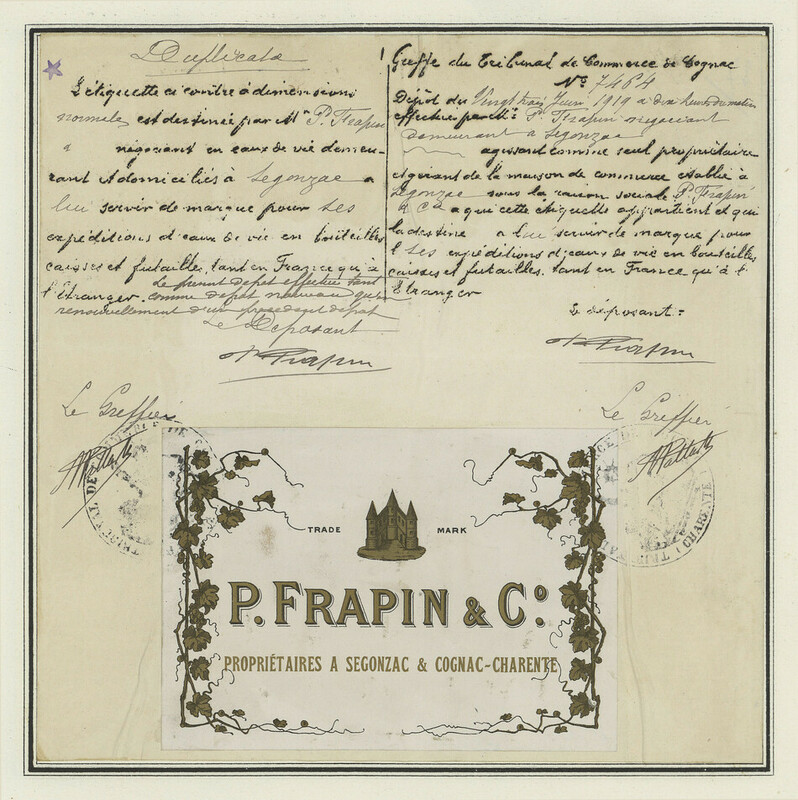 Duplicata
L'étiquette ci contre à dimensions
normales est destinée par Mr P. Frapin
négociant en eaux de vie demeu-
rant & domiciliés à Segonzac a
lui servir de marque pour ses
expéditions d'eaux de vie en bouteilles
caisses et futailles, tant en France qu'à
l'étranger. Le présent dépôt effectué tant
comme dépôt nouveau qu'en
renouvellement d'un précédent dépôt
Le Déposant
P. Frapin
Greffe du Tribunal de Commerce de Cognac
No 7464
Dépôt du Vingt trois Juin 1919 a dix heures du matin
effectué par Mr P. Frapin négociant
demeurant a Segonzac
agissant comme seul propriétaire
et gérant de la maison de commerce établie à
Segonzac sous la raison sociale P. Frapin
& Cie a qui cette étiquette appartient et qui
la destine a lui servir de marque pour
ses expéditions d'eaux de vie en bouteilles
caisses et futailles, tant en France qu'à l'
Etranger
Le déposant :
P. Frapin
Le Greffier
Le Greffier
TRADE MARK
P. FRAPIN & Co.
PROPRIÉTAIRES A SEGONZAC & COGNAC-CHARENTE
TRIBUNAL DE
CE DE
TRIB
CHARENTE